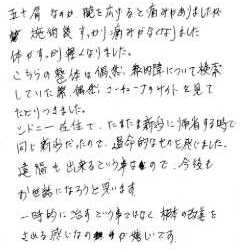 五十肩なのか腕を広げると痛みがありましたが
施術後すっかり痛みがなくなりました
体がすっかり軽くなりました。
こちらの整体は偶然、緑内障について検索
していた際、偶然ユーチューブのサイトを見て
たどりつきました。
シドニー在住で、たまたま新潟に帰省する時で
同じ新潟だったので、運命的なものを感じました。
遠隔も出来るという事なので、今後も
お世話になろうと思います
一時的に治すという事ではなく根本の改善を
される感じなのが嬉しいです